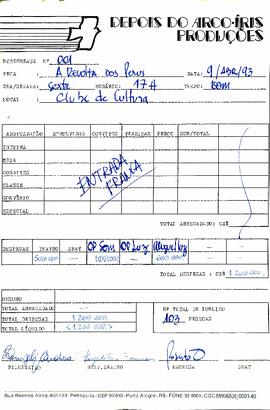 DEPOIS DO ARCO-ÍRIS
PRODUÇÕES
BORDEREAUX Nº 001
PEÇA : A REVOLTA DOS PERUS DATA: 9/ABR/93
DIA/SEMANA: SEXTA HORÁRIO: 17H TEMPO: BOM
LOCAL : CLUBE DE CULTURA
ARRECADAÇÃO DEVOLVIDAS CONVITES VENDIDAS PREÇO SUB/TOTAL
INTEIRA
MEIA
CONVITES
CLASSE
ESPECIAL
ENTRADA FRANCA
TOTAL ARRECADADO: CZ$
DESPESAS TEATRO SBAT OP SOM OP LUZ ALUGUEL LUZ
500.000 — 100.000 — 600.000 —
TOTAL DESPESAS : CZ$ 1.200.000,
RESUMO
TOTAL ARRECADADO —
TOTAL DESPESAS 1.200.000
TOTAL LÍQUIDO <1.200.000>
Nº TOTAL DE PÚBLICO
103 PESSOAS
BILHETEIRO EMPRESA SBAT
Rua Buenos Aires, 402/703 - Petrópolis - CEP 90.610 - Porto Alegre, RS - FONE